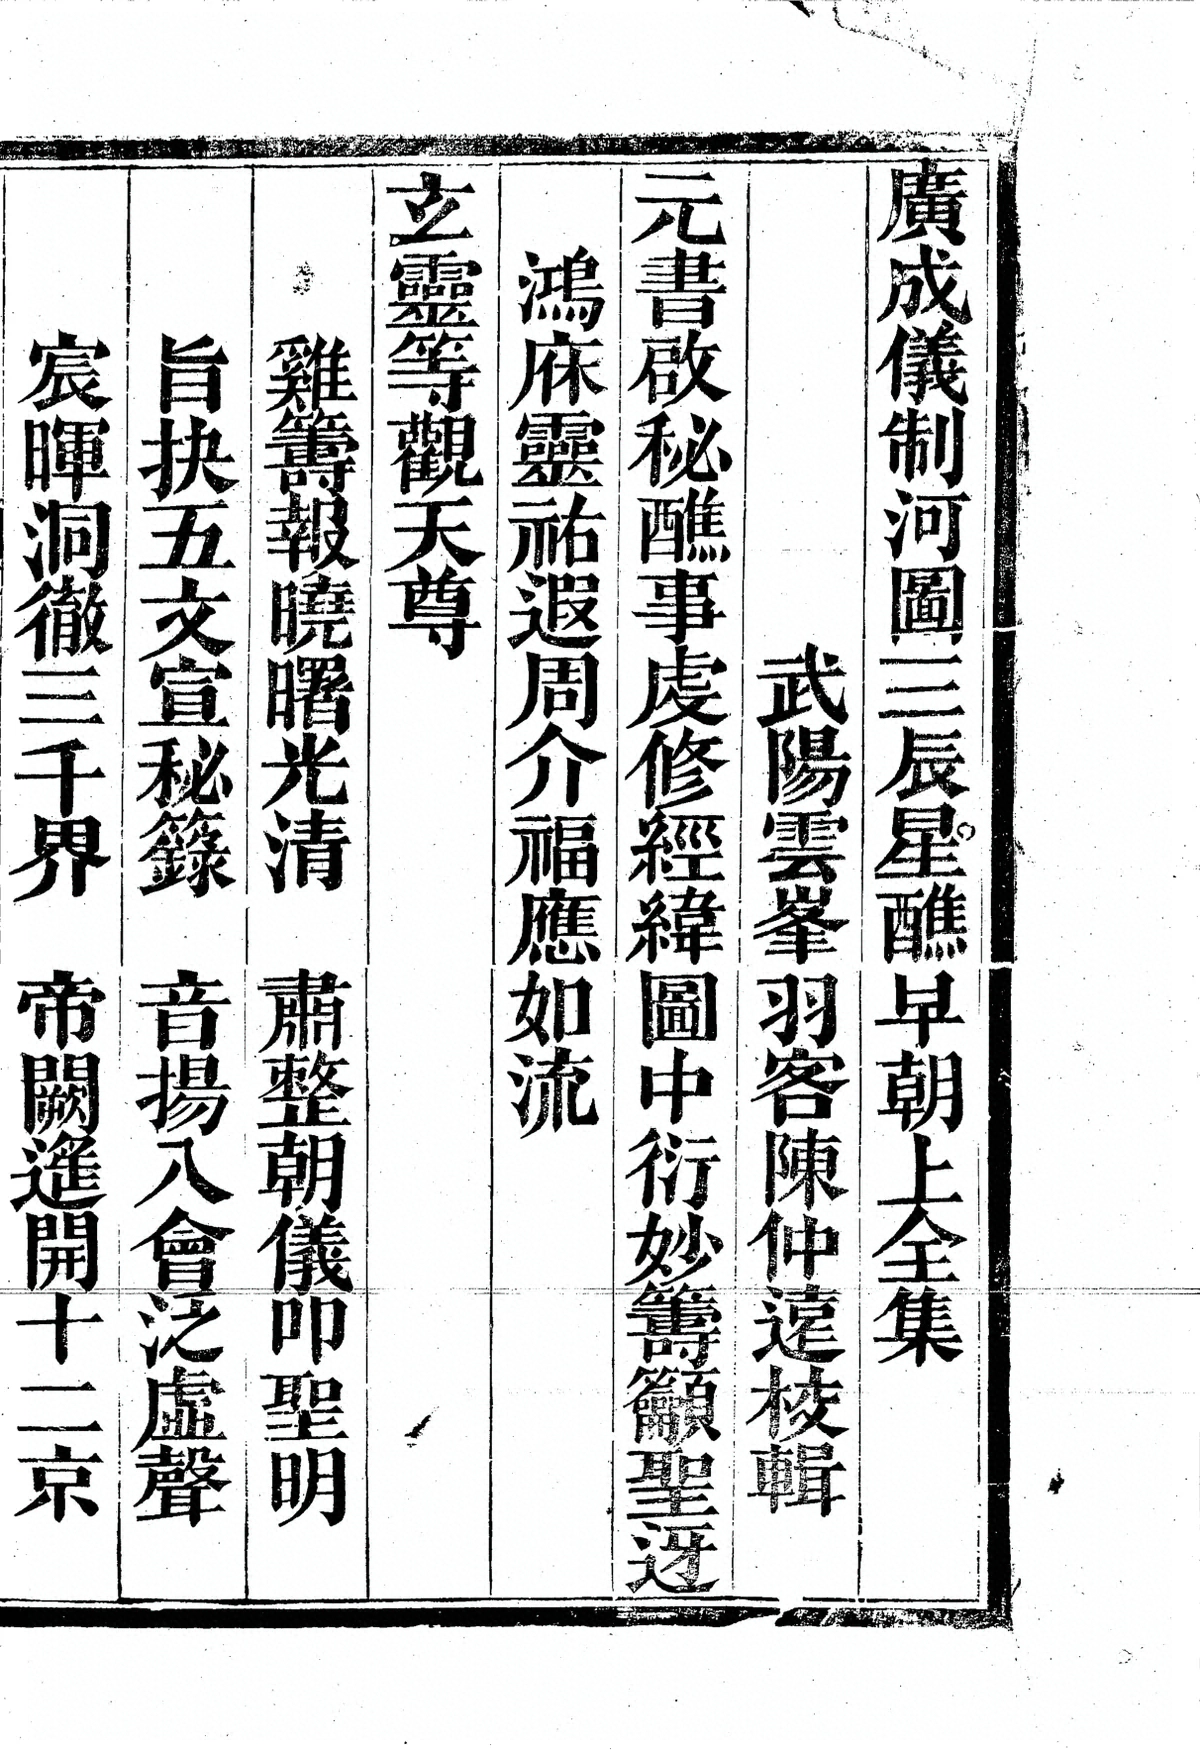 廣成儀制河圖三辰星醮早朝上全集
武陽雲峯羽客陳仲遠校輯
元書啟秘醮事虔修經緯圖中衍妙籌籲聖迓
鴻庥靈祐遐周介福應如流
玄靈等觀天尊
雞籌報曉曙光清　肅整朝儀叩聖明
旨抉五文宣秘籙　音揚八會泛虛聲
宸暉洞徹三千界　帝闕遙開十二京